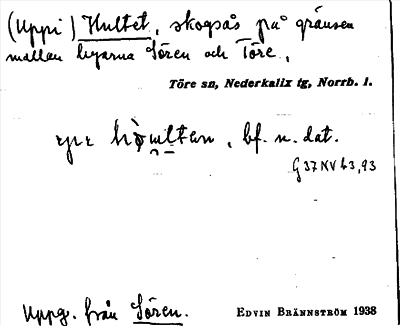 (Uppi) Hultet, skogsås på gränsen
mellan byarna Sören och Töre.
Töre sn, Nederkalix tg, Norrb. l.
bf. n. dat.
G 37 NV 43,93
Uppg. från Sören.
EDVIN BRÄNNSTRÖM 1938